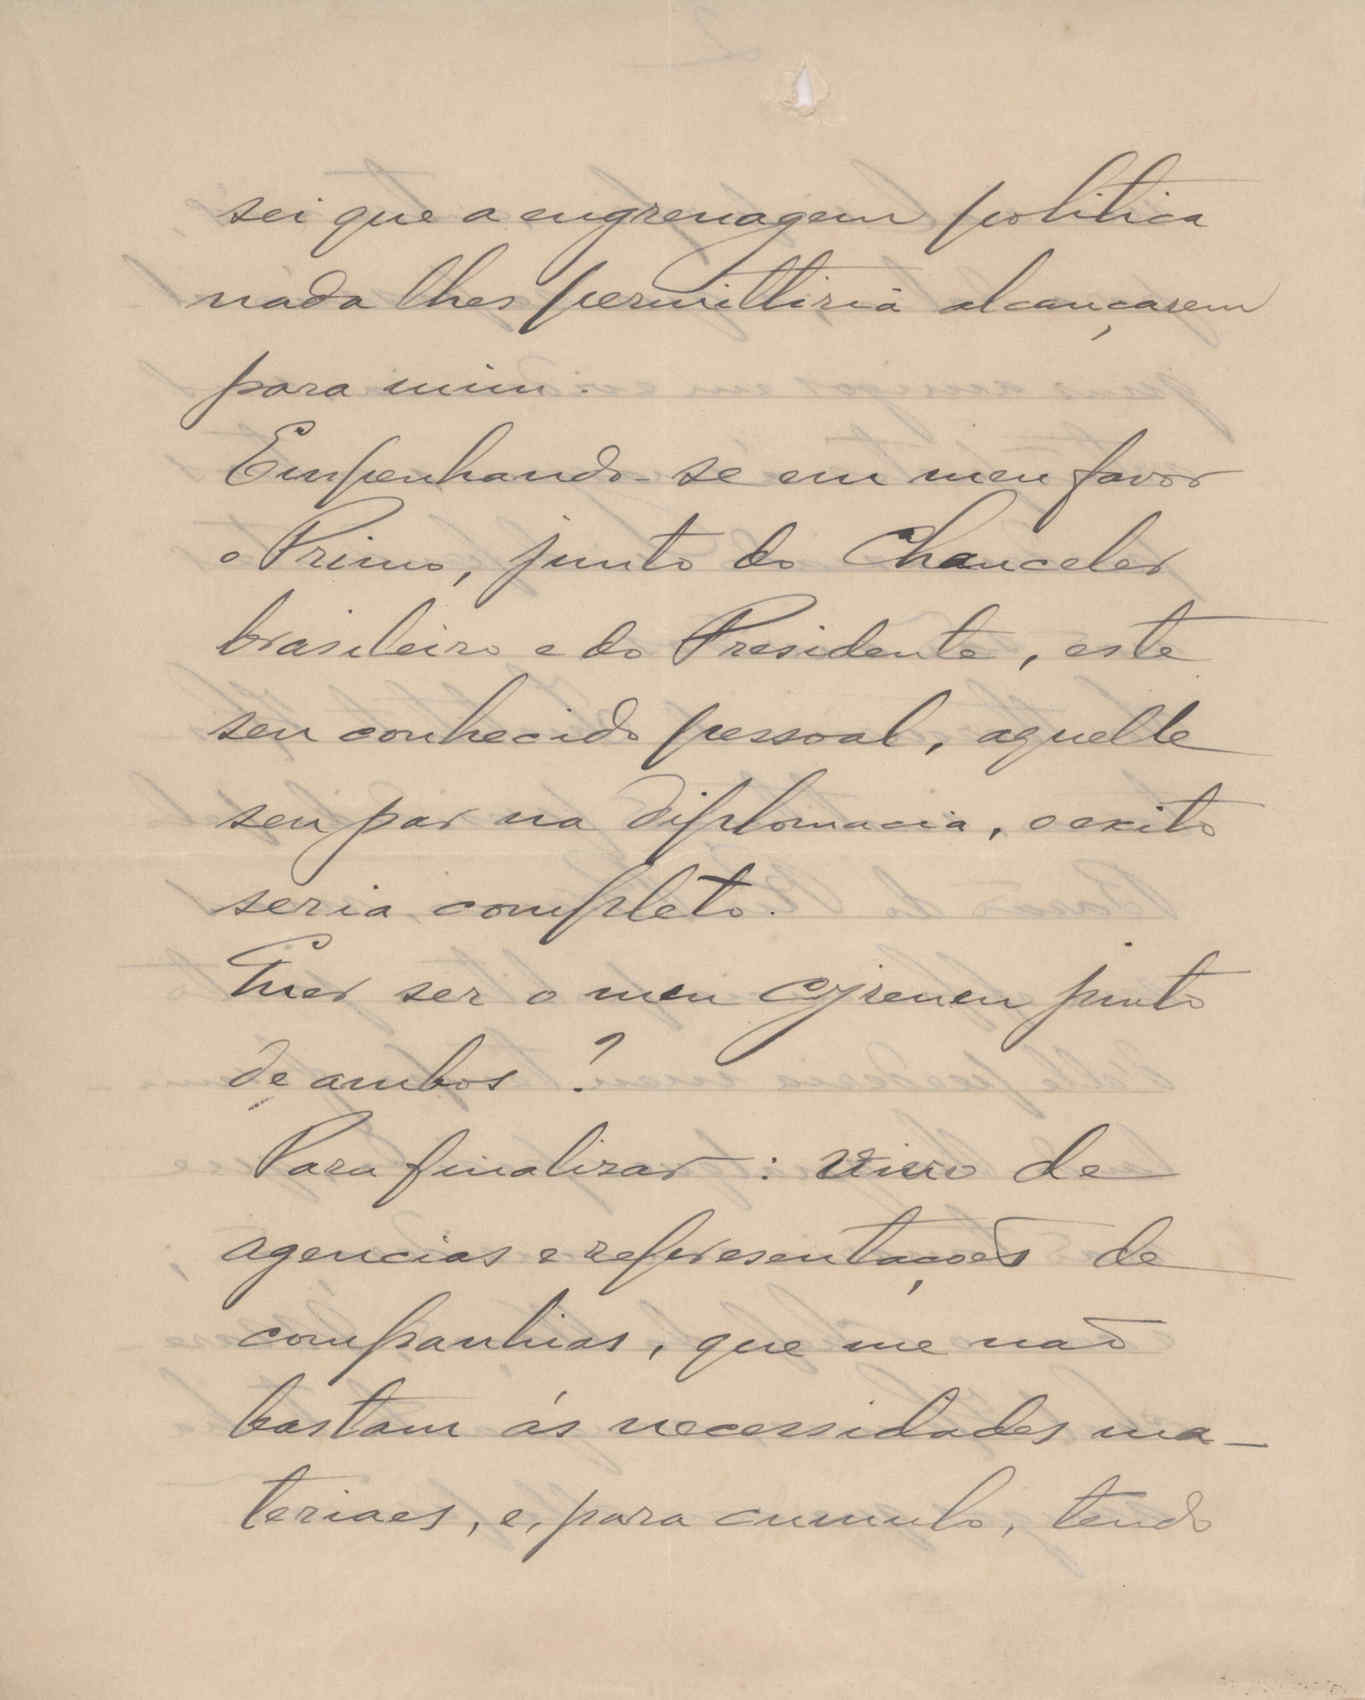 sei que a engrenagem politica
nada lhes permittiria alcançarem
para mim.
Empenhando-se em meu favor
o Primo, junto do Chanceler
brasileiro e do Presidente, este
seu conhecido pessoal, aquelle
seu par na diplomacia, o exito
seria completo.
Quer ser o meu Cyreneu junto
de ambos?
Para finalizar: Vivo de
agencias e representações de
companhias, que me não
bastam ás necessidades ma-
teriaes, e, para cumulo, tendo